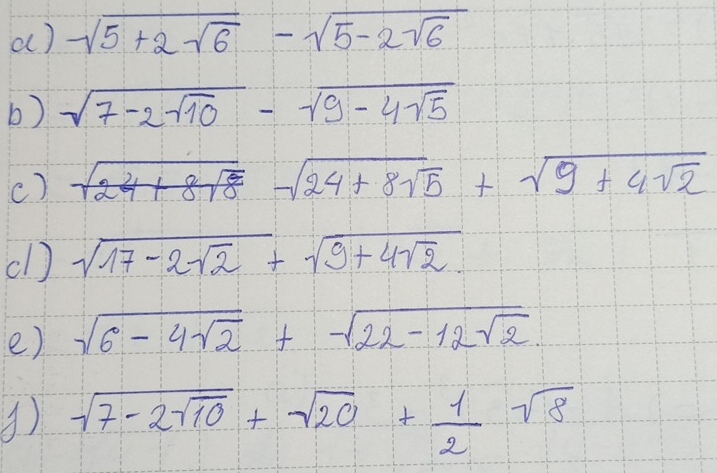 a) √(5 + 2√6) - √(5 - 2√6)
b) √(7 - 2√10) - √(9 - 4√5)
c) √(24 + 8√8) √(24 + 8√5) + √(9 + 4√2)
d) √(17 - 2√2) + √(9 + 4√2).
e) √(6 - 4√2) + √(22 - 12√2).
f) √(7 - 2√10) + √20 + 1/2 √8